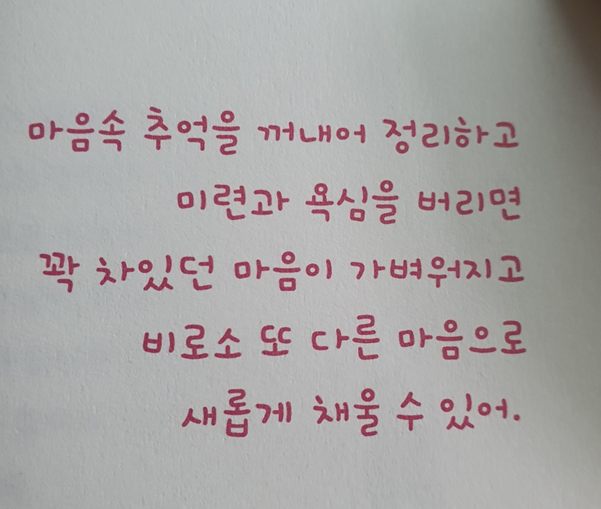 마음속 추억을 꺼내어 정리하고
미련과 욕심을 버리면
꽉 차있던 마음이 가벼워지고
비로소 또 다른 마음으로
새롭게 채울 수 있어.